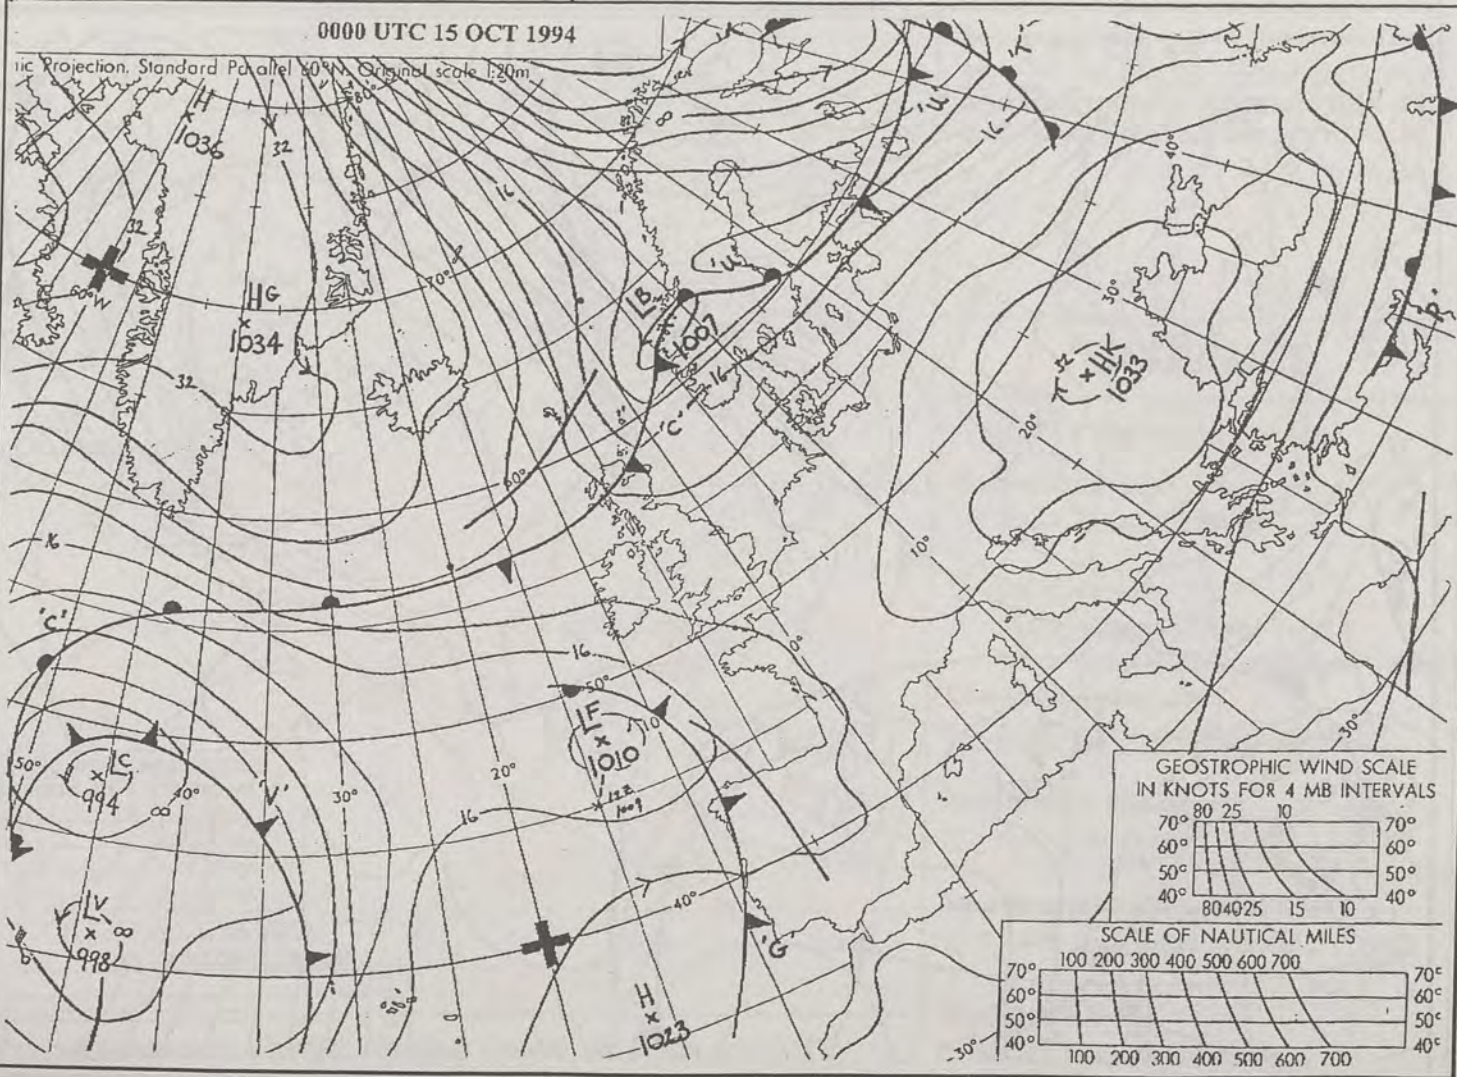 0000 UTC 15 OCT 1994
ic Projection. Standard Parallel 60°N. Original scale 1:20m
H
1036
32
80°
32
60°W
HG
1034
32
70°
16
8
'U'
'U'
'T'
16
40°
30°
LB
1007
16
'C'
HK
1033
32
20°
'P'
60°
10°
16
'C'
16
50°
0°
LF
1010
10
12Z
1009
LC
994
50°
40°
'V'
30°
20°
16
8
LV
998
8
40°
'G'
H
1023
30°
30°
GEOSTROPHIC WIND SCALE
IN KNOTS FOR 4 MB INTERVALS
80 25 10
70° 70°
60° 60°
50° 50°
40° 40°
80 40 25 15 10
SCALE OF NAUTICAL MILES
100 200 300 400 500 600 700
70° 70°
60° 60°
50° 50°
40° 40°
100 200 300 400 500 600 700